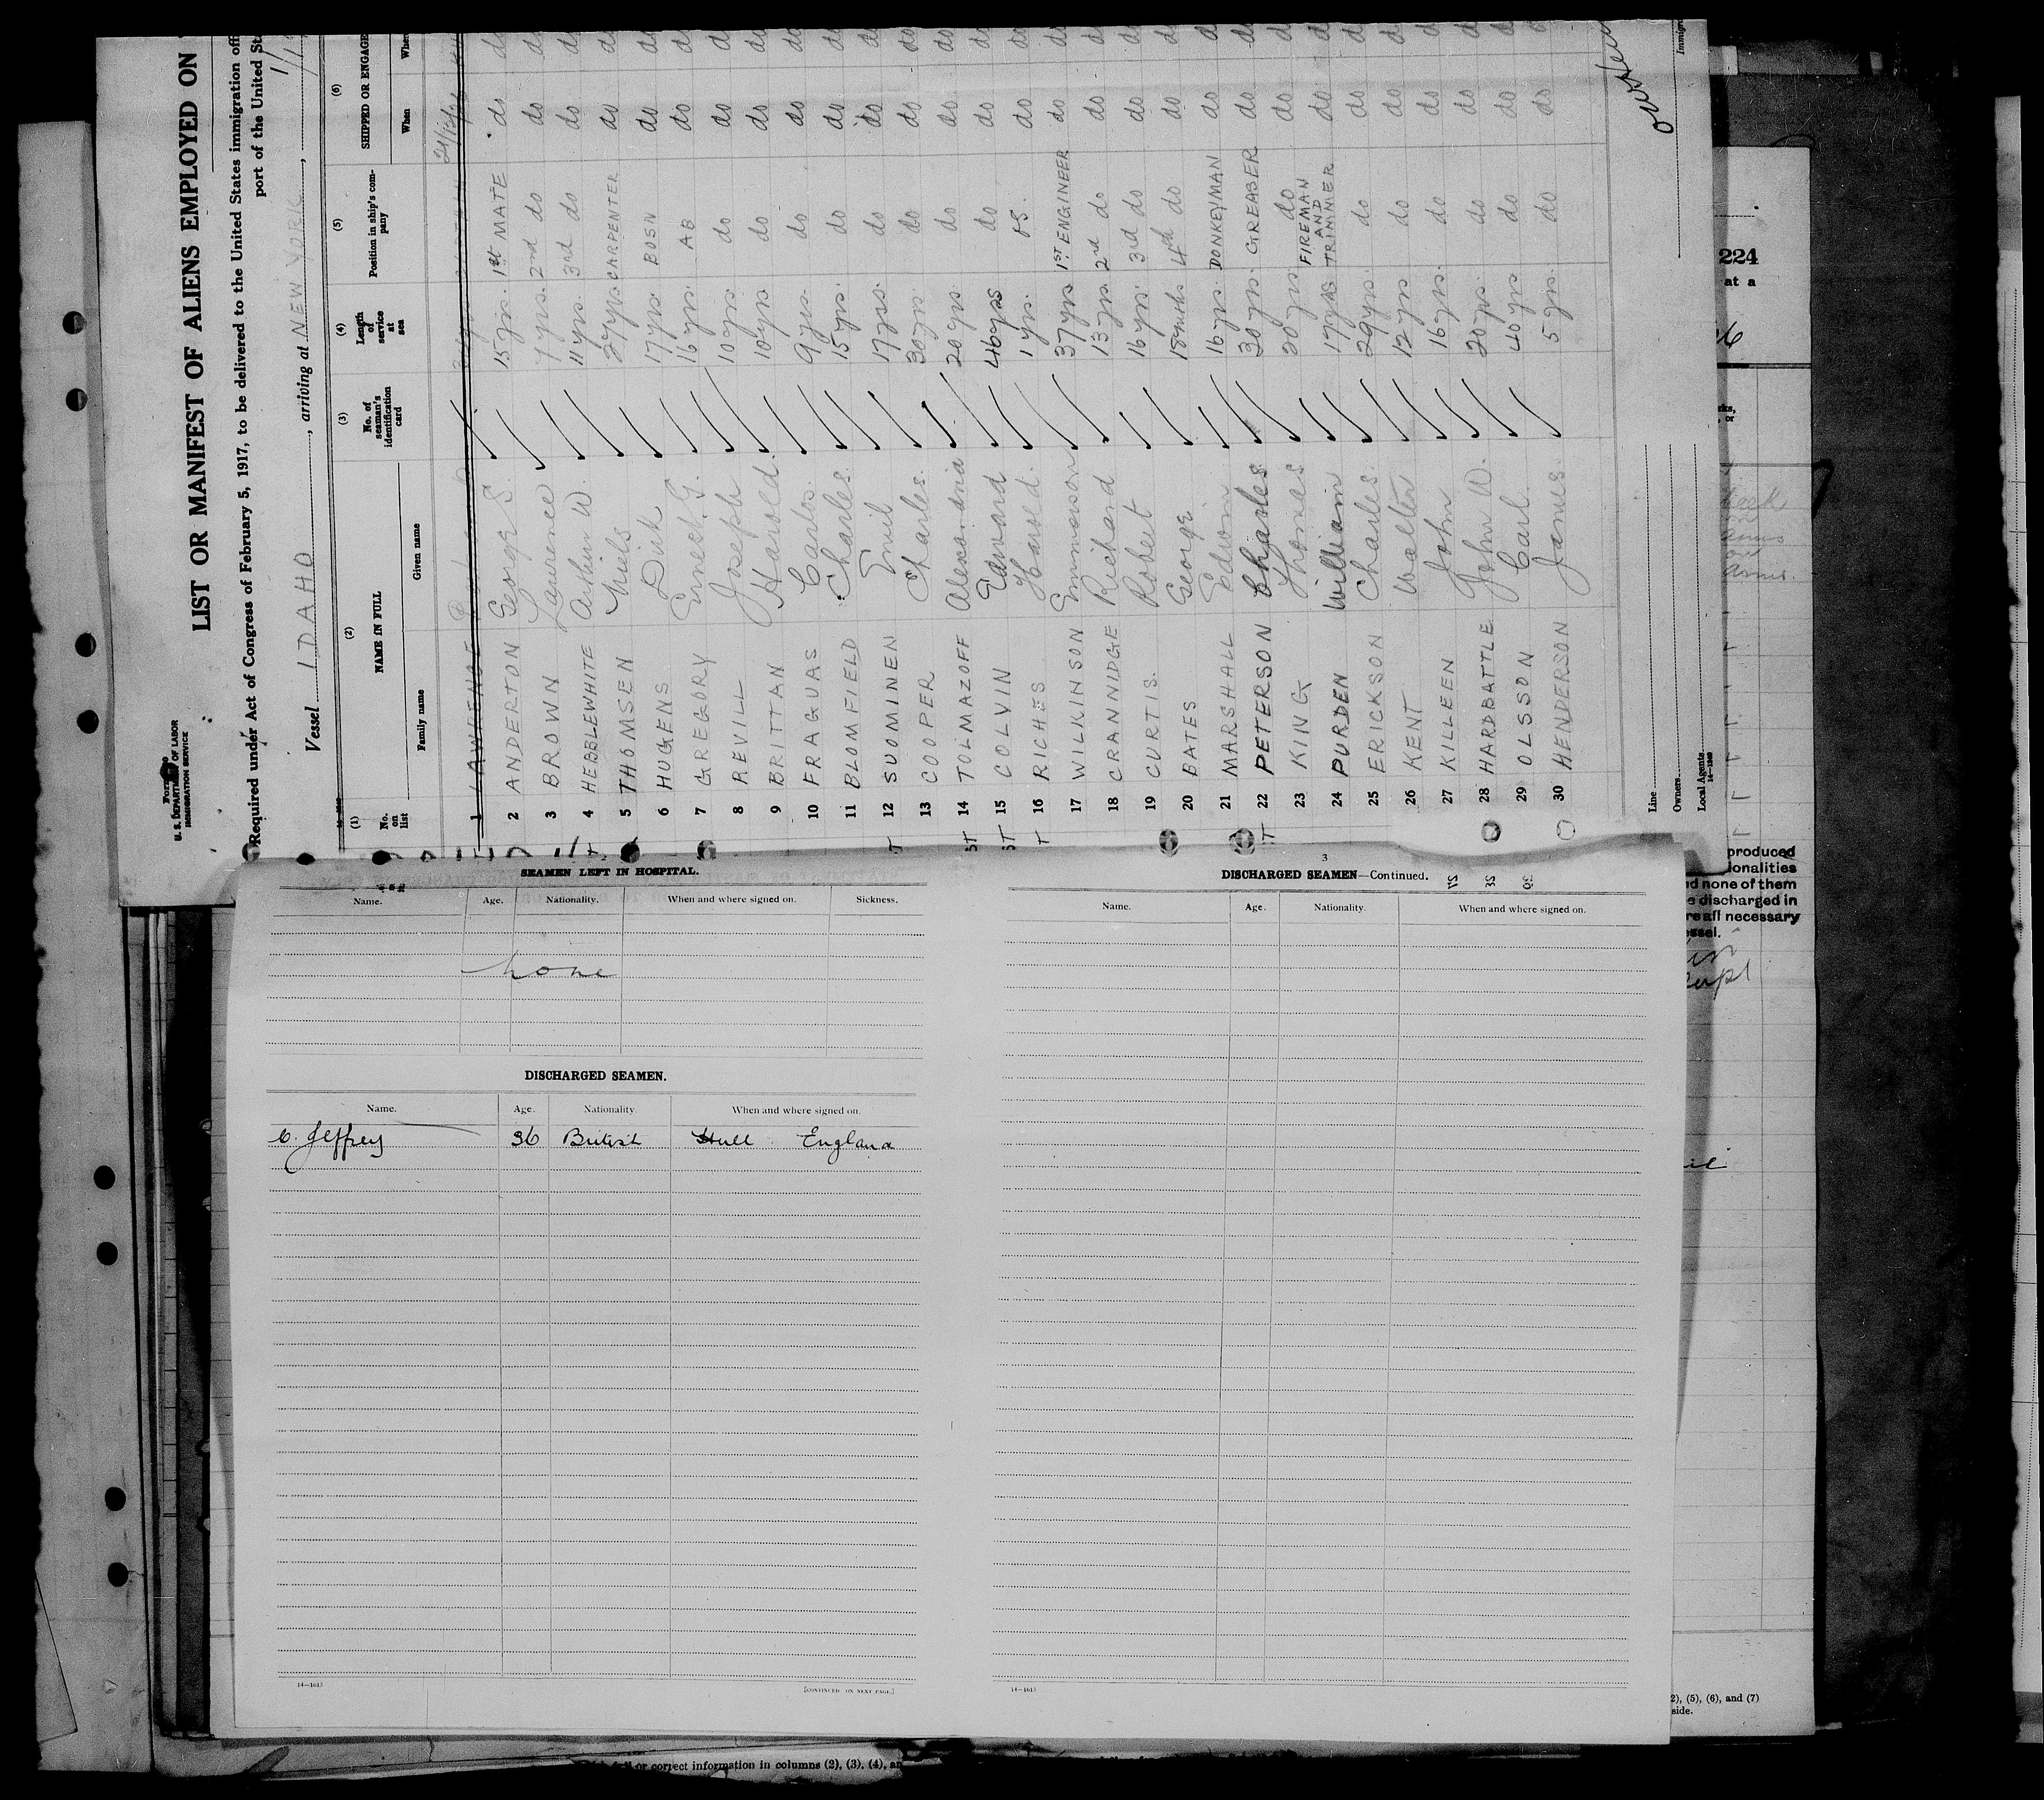 Form
U. S. DEPARTMENT OF LABOR
IMMIGRATION SERVICE
LIST OR MANIFEST OF ALIENS EMPLOYED ON
Required under Act of Congress of February 5, 1917, to be delivered to the United States immigration
port of the United
Vessel IDAHO, arriving at NEW YORK,
(1) No. on list (2) NAME IN FULL Family name Given name (3) No. of seaman's identification card (4) Length of service at sea (5) Position in ship's company (6) SHIPPED OR ENGAGE When
1 LAWRENCE
2 ANDERTON George S. 15 yrs. 1st MATE do
3 BROWN Lawrence 7 yrs. 2nd do do
4 HEBBLEWHITE Arthur W. 11 yrs. 3rd do do
5 THOMSEN Niels 27 yrs. CARPENTER do
6 HUGENS Dirk 17 yrs. BOSN do
7 GREGORY Ernest G. 16 yrs. AB do
8 REVILL Joseph 10 yrs. do do
9 BRITTAN Harold. 10 yrs do do
10 FRAGUAS Carlos. 9 yrs. do do
11 BLOMFIELD Charles. 15 yrs. do do
12 SUOMINEN Emil 17 yrs. do do
13 COOPER Charles. 30 yrs. do do
14 TOLMAZOFF 20 yrs. do do
15 COLVIN Edward 46 yrs do do
16 RICHES Harold. 1 yrs. do
17 WILKINSON Emmerson 37 yrs 1ST ENGINEER do
18 CRANNIDGE Richard 13 yrs. 2nd do do
19 CURTIS. Robert 16 yrs. 3rd do do
20 BATES George 4th do do
21 MARSHALL Edwin 16 yrs. DONKEYMAN do
22 PETERSON Charles 30 yrs. GREASER do
23 KING Thomas 20 yrs do do
24 PURDEN William 17 yrs FIREMAN AND TRIMMER do
25 ERICKSON Charles. 29 yrs. do do
26 KENT Walter 12 yrs do do
27 KILLEEN John 16 yrs. do do
28 HARDBATTLE John W. 20 yrs. do do
29 OLSSON Carl. 40 yrs do do
30 HENDERSON James. 5 yrs. do do
Line
Owners
Local Agents
14-1240
224
at a
produced
nd none of them
discharged in
all necessary
SEAMEN LEFT IN HOSPITAL.
Name. Age. Nationality. When and where signed on. Sickness.
none
DISCHARGED SEAMEN.
Name. Age. Nationality. When and where signed on.
C. Jeffrey 36 British Hull England
14-1613
[CONTINUED ON NEXT PAGE.]
3
DISCHARGED SEAMEN—Continued.
Name. Age. Nationality. When and where signed on.
14-1613
(5), (6), and (7)
side.
or correct information in columns (2), (3), (4),